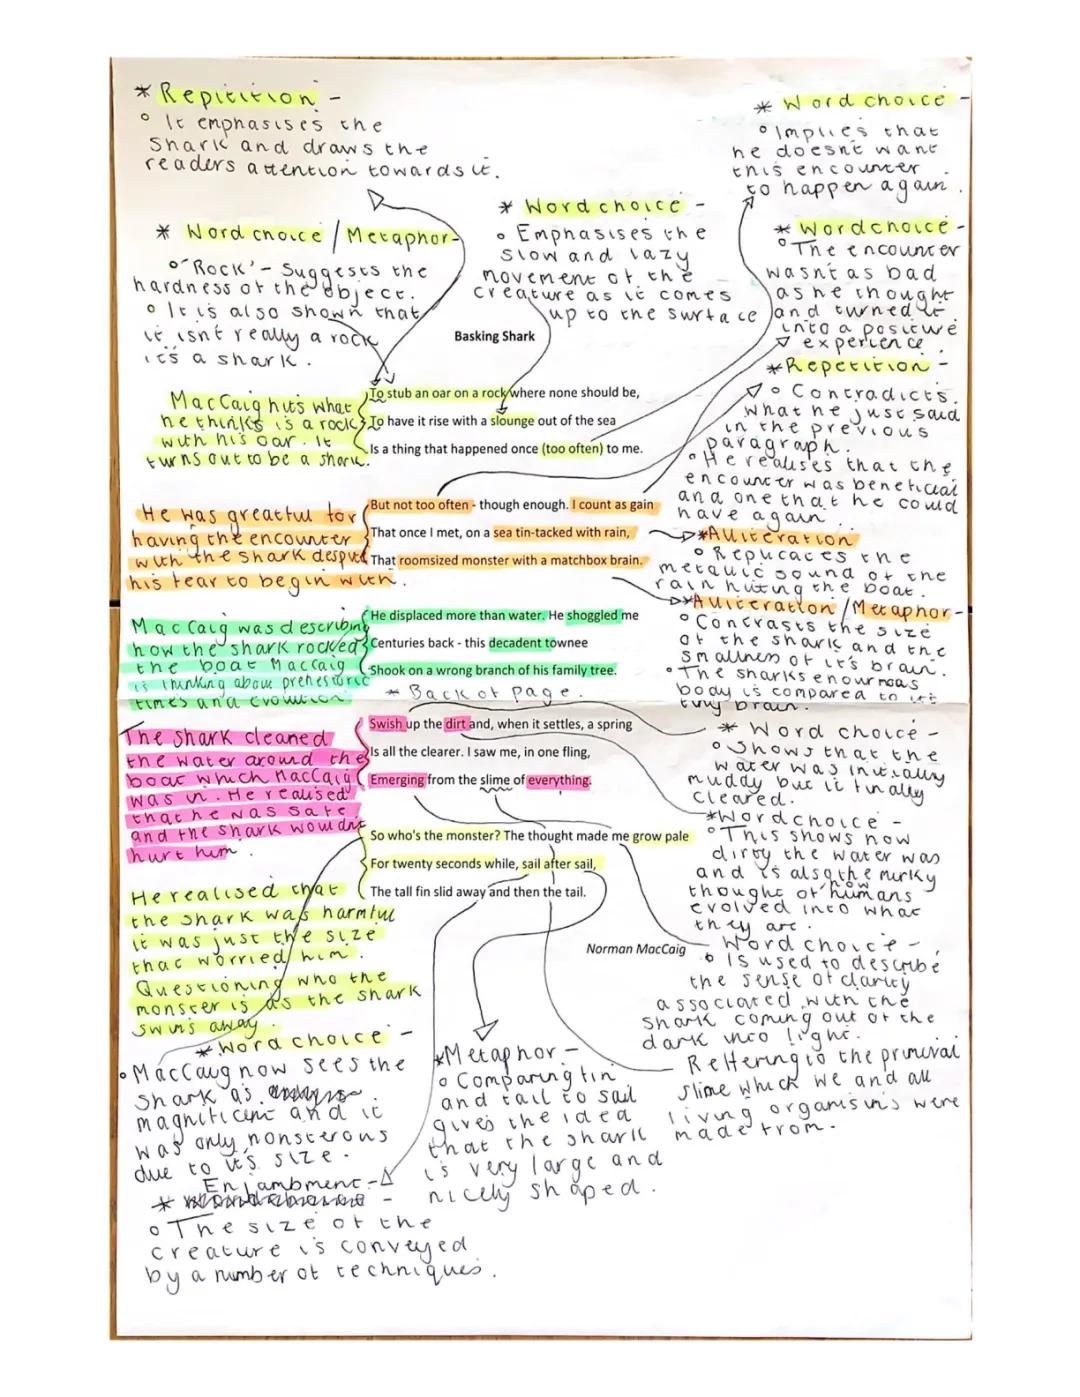 * Repitition -
° It emphasises the
Shark and draws the
readers attention towards it.
* Word choice / Metaphor-
° 'Rock' - Suggests the
hardness of the object.
° It is also shown that
it isn't really a rock
it's a shark.
* Word choice -
° Emphasises the
slow and lazy
movement of the
creature as it comes
up to the surface
* Word choice -
° Implies that
he doesnt want
this encounter
to happen again.
* Wordchoice -
° The encounter
wasnt as bad
as he thought
and turned it
into a positive
experience.
* Repetition -
° Contradicts
what he just said
in the previous
paragraph.
° He realises that the
encounter was beneficial
and one that he could
have again
Basking Shark
To stub an oar on a rock where none should be,
To have it rise with a slounge out of the sea
Is a thing that happened once (too often) to me.
MacCaig hits what
he thinks is a rock
with his oar. It
turns out to be a shark.
But not too often - though enough. I count as gain
That once I met, on a sea tin-tacked with rain,
That roomsized monster with a matchbox brain.
He was greatful for
having the encounter
with the shark despite
his fear to begin with.
* Alliteration
° Replicates the
metallic sound of the
rain hitting the boat.
* Alliteration / Metaphor-
° Contrasts the size
of the shark and the
smallness of it's brain.
° The sharks enourmous
body is compared to its
tiny brain.
He displaced more than water. He shoggled me
Centuries back - this decadent townee
Shook on a wrong branch of his family tree.
* Back of page.
MacCaig was describing
how the shark rocked
the boat MacCaig
is thinking about prehistoric
times and evolution
Swish up the dirt and, when it settles, a spring
Is all the clearer. I saw me, in one fling,
Emerging from the slime of everything.
The shark cleaned
the water around the
boat which MacCaig
was in. He realised
that he was safe
and the shark wouldnt
hurt him.
* Word choice -
° Shows that the
water was initially
muddy but it finally
cleared.
* Word choice -
° This shows how
dirty the water was
and is also the murky
thought of how humans
evolved into what
they are.
So who's the monster? The thought made me grow pale
For twenty seconds while, sail after sail,
The tall fin slid away and then the tail.
Norman MacCaig
He realised that
the shark was harmful
it was just the size
that worried him.
Questioning who the
monster is as the shark
swims away.
Word choice -
° Is used to describe
the sense of clarity
associated with the
shark coming out of the
dark into light.
Reffering to the primeval
slime which we and all
living organisms were
made from.
* Word choice -
° MacCaig now sees the
shark as
magnificent and it
was only monsterous
due to it's size.
* Metaphor -
° Comparing fin
and tail to sail
gives the idea
that the shark
is very large and
nicely shaped.
Enjambment -
*
° The size of the
creature is conveyed
by a number of techniques.